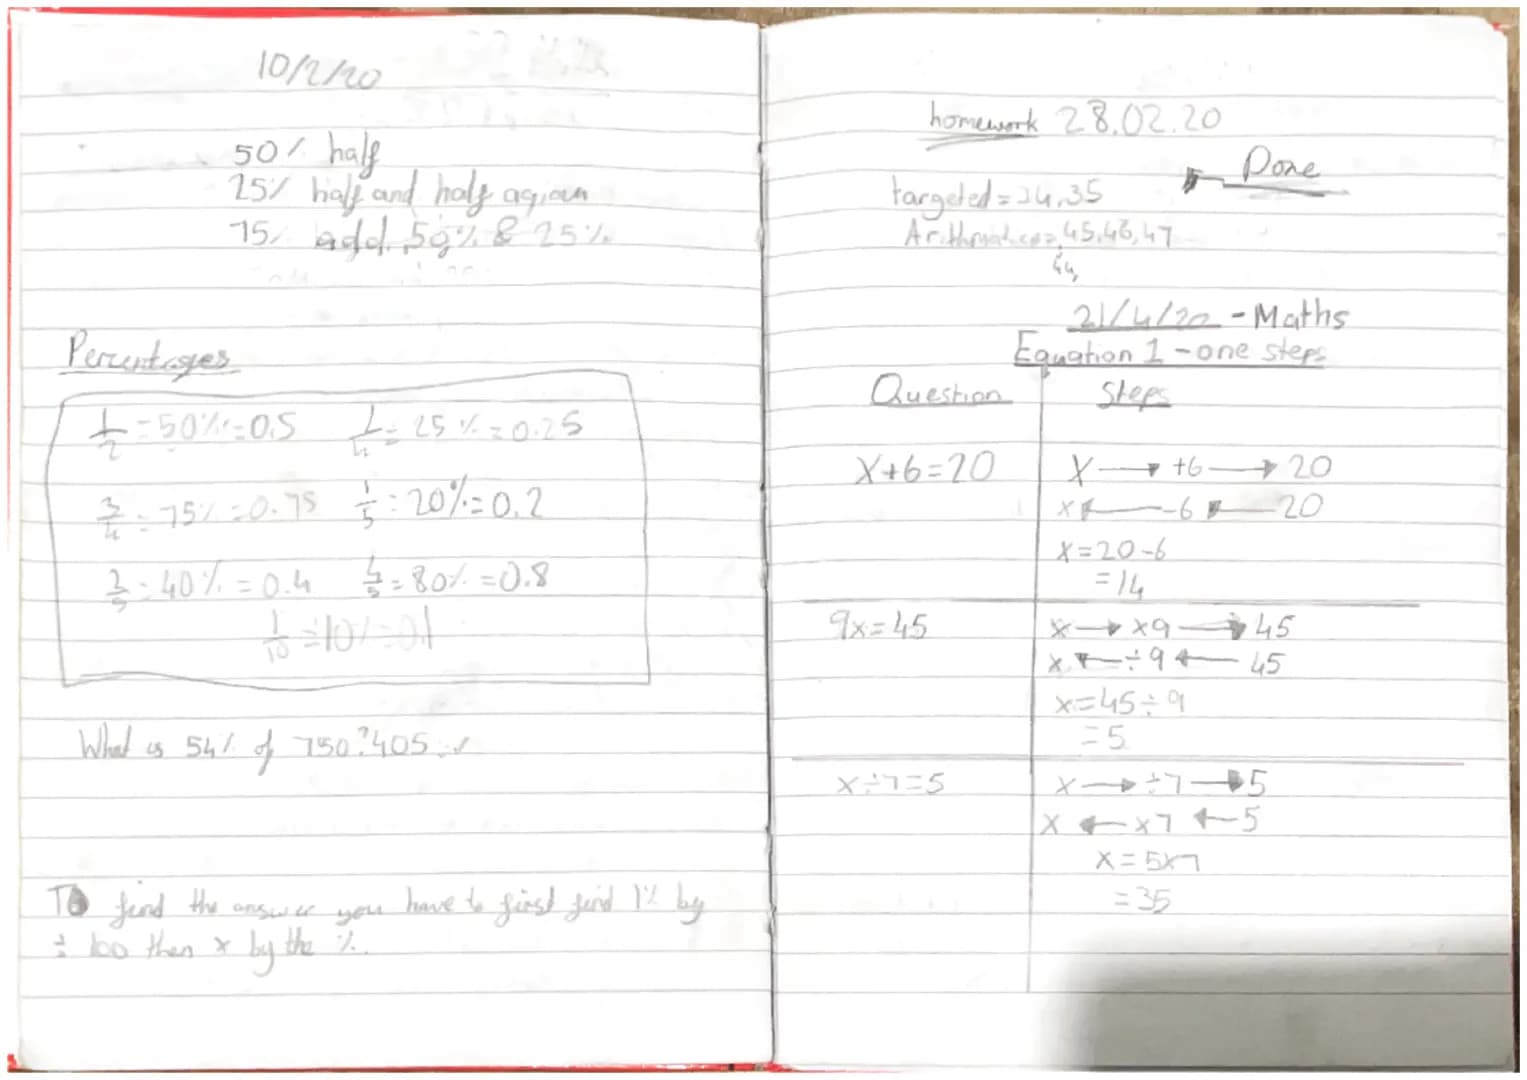 10/2/20
50% half
25% half and half agian
75% add 50% & 25%
Percentages
1/2 = 50% = 0.5 1/4 = 25% = 0.25
3/4 = 75% = 0.75 1/5 = 20% = 0.2
2/5 = 40% = 0.4 4/5 = 80% = 0.8
1/10 = 10% = 0.1
What is 54% of 750? 405 ✓
To find the answer you have to first find 1% by
÷ 100 then x by the %.
homework 28.02.20
Done
targeted = 34,35
45,46,47
44,
21/4/20 - Maths
Equation 1 - one steps
Question Steps
X+6=20 X → +6 → 20
x ← -6 ← 20
x=20-6
=14
9x=45 x → x9 → 45
x ← ÷9 ← 45
x=45÷9
=5
x÷7=5 x → ÷7 → 5
x ← x7 ← 5
x=5x7
=35